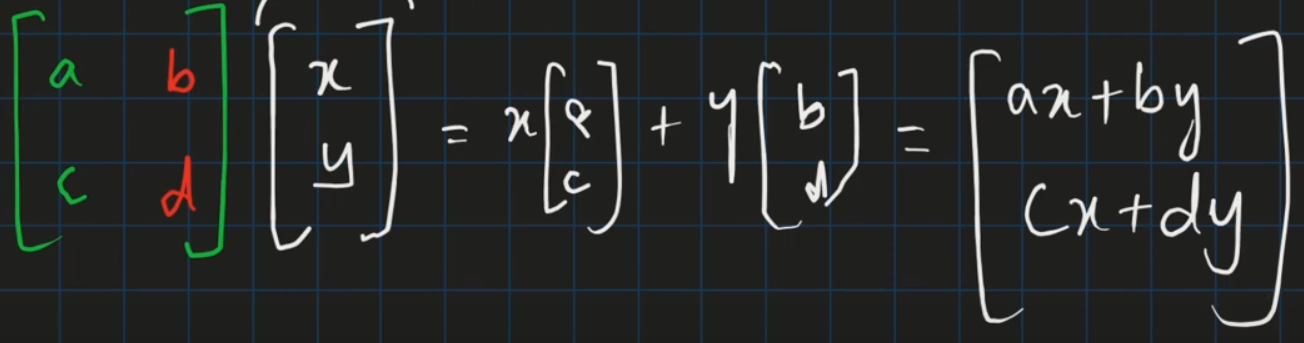 [a b; c d] [x; y] = x[a; c] + y[b; d] = [ax+by; cx+dy]